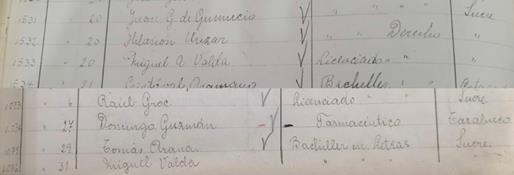 1531 " 20 Juan G. de Gumucio " " " Sucre
1532 " 20 Hilarión " Derecho "
1533 " 20 Miguel A. Valda Licenciado " "
1534 " 21 Bachiller
6 Raúl Groc Licenciado " " Sucre
27 Domingo Guzmán Farmacéutico Tarabuco
29 Tomás Arana Bachiller en Letras Sucre
31 Miguel Valda " " "